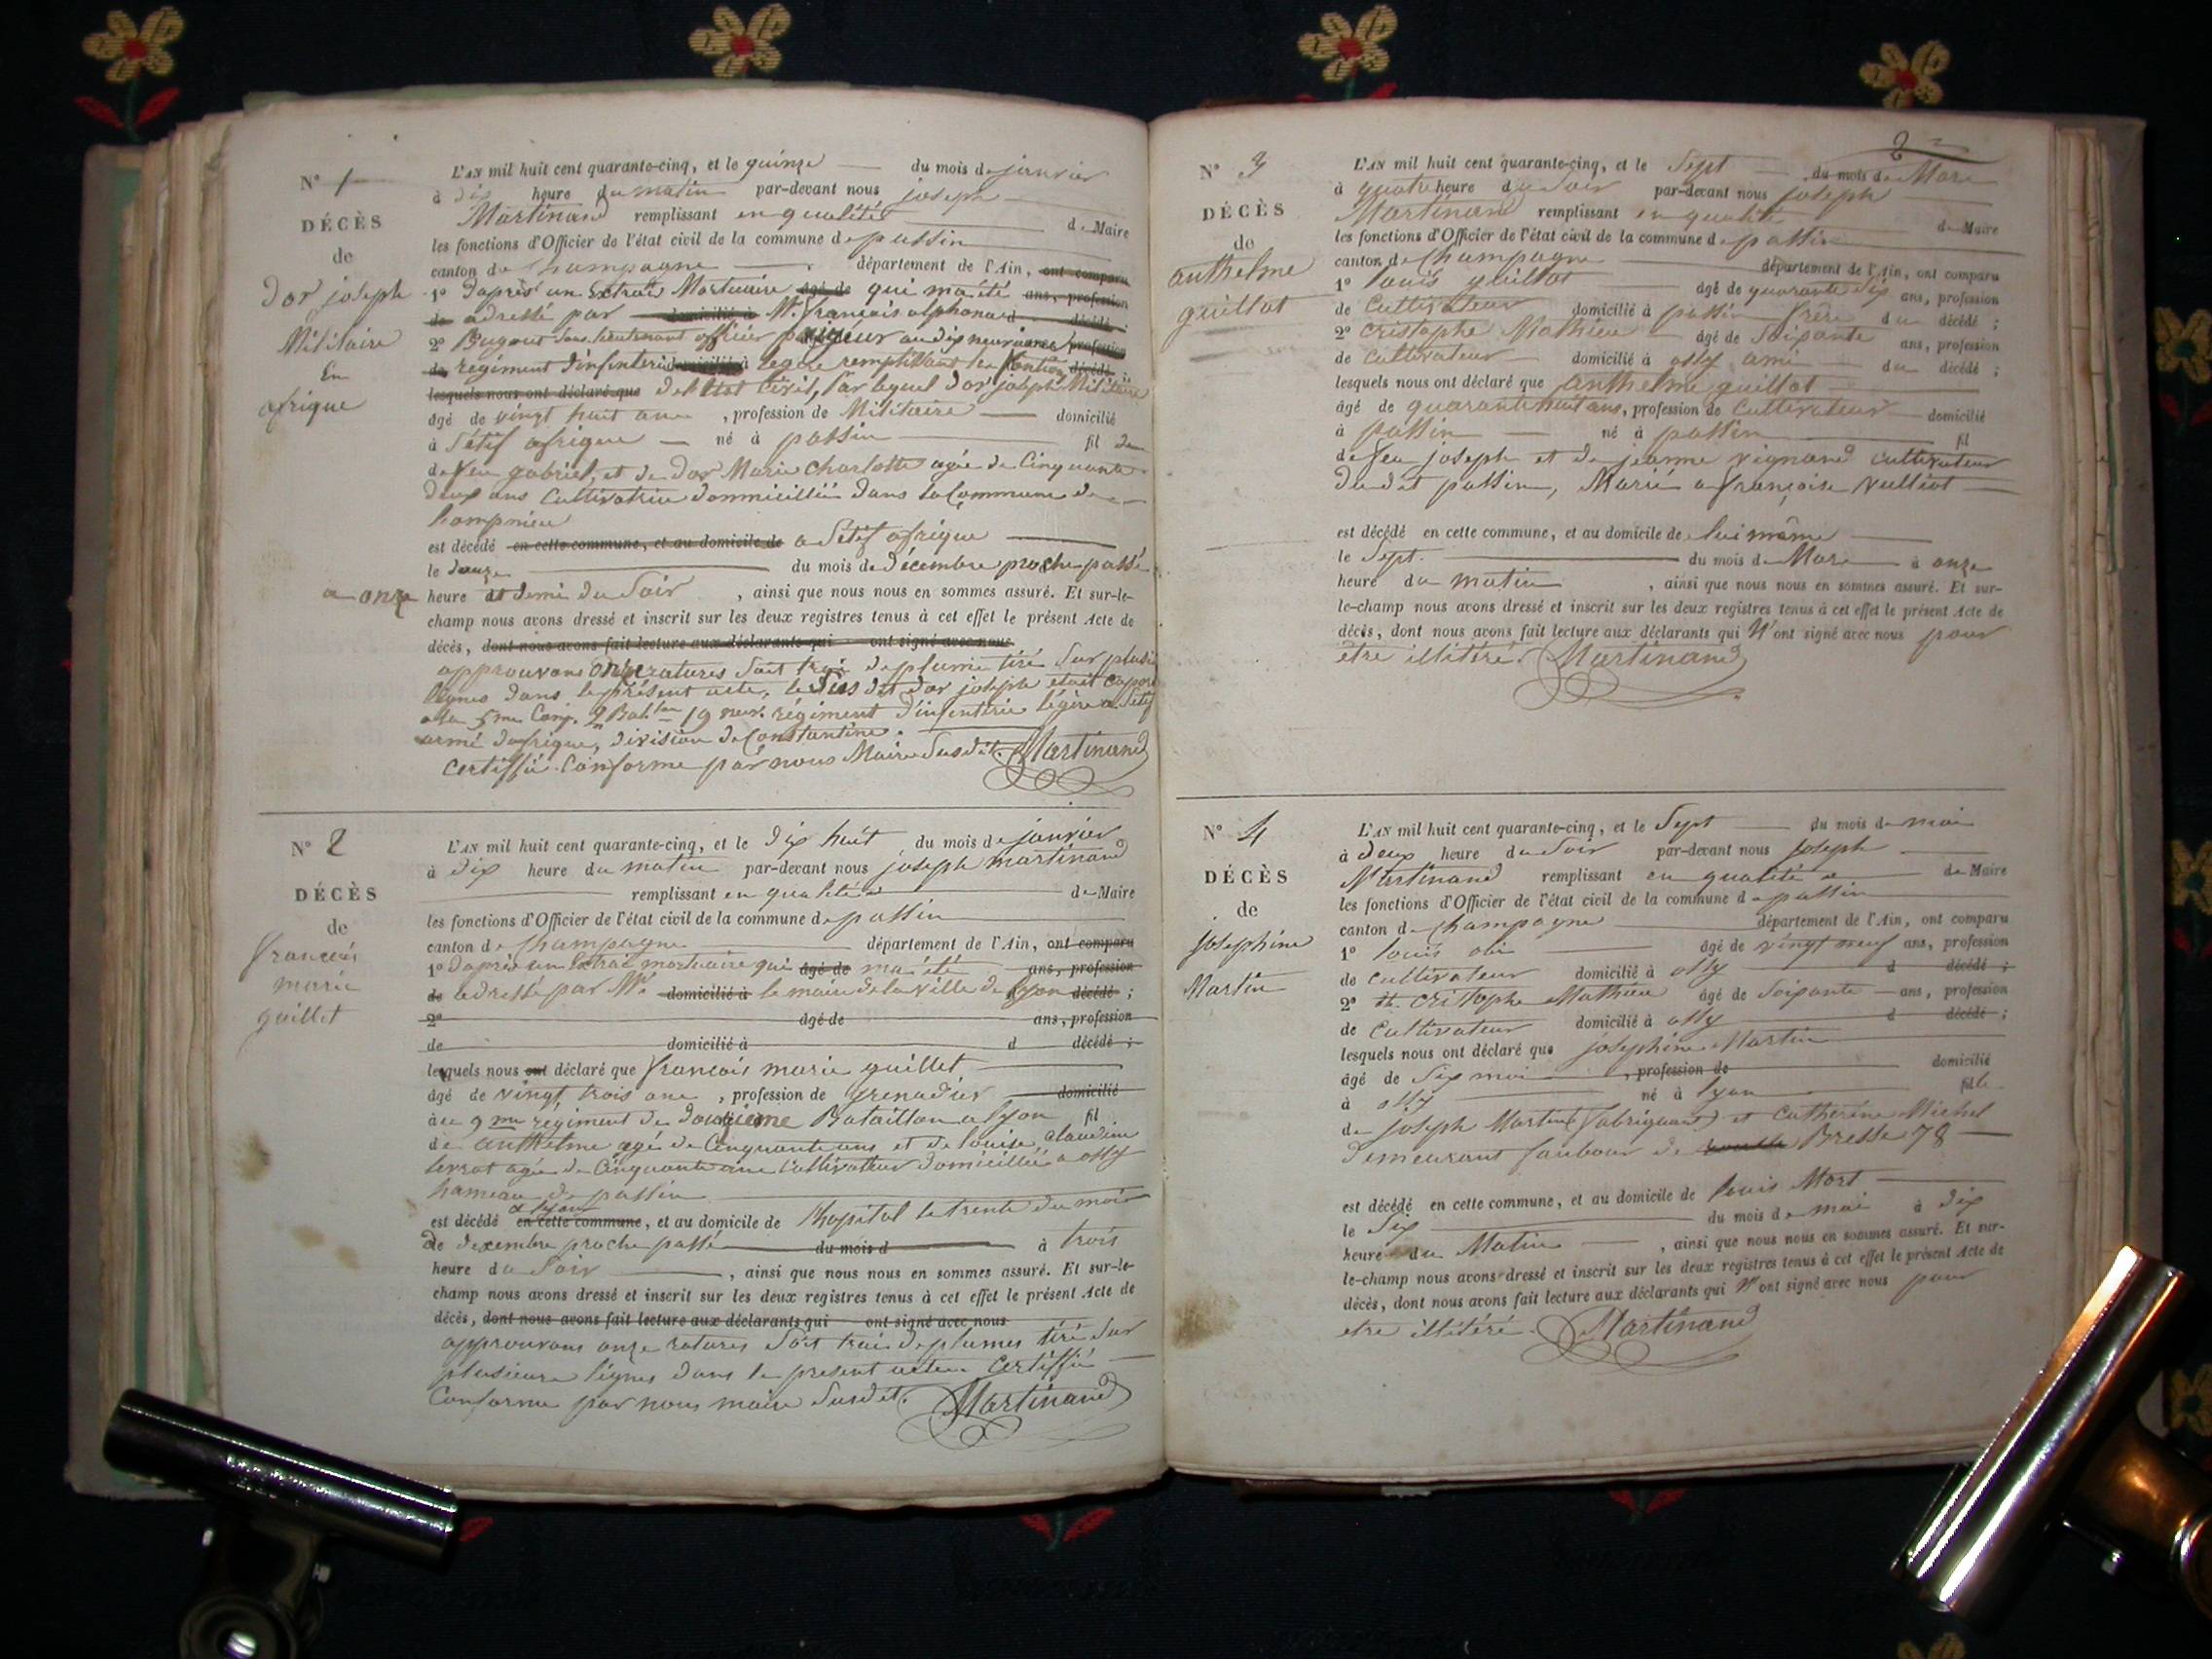 N° 1
DÉCÈS
de
Dor joseph
Militaire
En
afrique
L'AN mil huit cent quarante-cinq, et le quinze du mois de janvier
à dix heure du matin par-devant nous joseph
Martinand remplissant en qualité de Maire
les fonctions d'Officier de l'état civil de la commune de passin
canton de Champagne département de l'Ain, ont comparu
1° D'après un Extrait Mortuaire âgé de qui ma été ans, profession
de adressé par domicilié à Mr. françois alphonse décédé ;
2° Bugout Sous lieutenant officier payeur au dix neuvième profession
de régiment d'infenterie domicilié à legère remplissant les fontions décédé ;
lesquels nous ont déclaré que de l'Etat Civil, Par lequel Dor joseph Militaire
âgé de vingt huit ans, profession de Militaire domicilié
à Sétif afrique né à passin fil de
de feu gabriel, et de Dor Marie Charlotte agée de Cinquante
Deux ans Cultivatrice Dommicilliée Dans la Commune de
Lompnieu
est décédé en cette commune, et au domicile de a Sétif afrique
le douze du mois de Décembre proche passé
a onze heure et demi du Soir, ainsi que nous nous en sommes assuré. Et sur-le-
champ nous avons dressé et inscrit sur les deux registres tenus à cet effet le présent Acte de
décès, dont nous avons fait lecture aux déclarants qui ont signé avec nous
approuvons onze ratures Soit trai de plume tiré Sur plusieu
lignes dans le présent acte, le Sus dit Dor joseph etait Capor
a la 5me Comp. 2 Batlon 19 neuv. régiment d'infenterie légère a Sétif
armé d'afrique, division de Constantine.
Certiffié Conforme par nous Maire Susdit. Martinand
N° 2
DÉCÈS
de
francois
marie
guillet
L'AN mil huit cent quarante-cinq, et le dix huit du mois de janvier
à dix heure du matin par-devant nous joseph martinand
remplissant en qualité de Maire
les fonctions d'Officier de l'état civil de la commune de passin
canton de Champagne département de l'Ain, ont comparu
1° D'après un Extrait mortuaire qui âgé de ma été ans, profession
de adressé par Mr. domicilié à le maire de la ville de lyon décédé ;
2° âgé de ans, profession
de domicilié à d décédé ;
lesquels nous ont déclaré que francois marie guillet
âgé de vingt trois ans, profession de grenadier domicilié
à au 9me régiment de douzieme Bataillon a lyon fil
de anthelme agé de Cinquante ans et de louise Claudine
agée de Cinquante ans Cultivateur Domicillié a ossy
hameau de passin
a lyon
est décédé en cette commune, et au domicile de l'hopital le trente du mois
de decembre proche passé du mois d à trois
heure du Soir, ainsi que nous nous en sommes assuré. Et sur-le-
champ nous avons dressé et inscrit sur les deux registres tenus à cet effet le présent Acte de
décès, dont nous avons fait lecture aux déclarants qui ont signé avec nous
approuvons onze ratures Soit trai de plumes tiré Sur
plusieurs lignes dans le present acte Certiffié
Conforme par nous maire Susdit. Martinand
2
N° 3
DÉCÈS
de
anthelme
guillot
L'AN mil huit cent quarante-cinq, et le Sept du mois de Mars
à quatre heure du Soir par-devant nous joseph
Martinand remplissant en qualité de Maire
les fonctions d'Officier de l'état civil de la commune de passin
canton de Champagne département de l'Ain, ont comparu
1° louis guillot âgé de quarante dix ans, profession
de Cultivateur domicilié à passin frère du décédé ;
2° Cristophe Mathieu âgé de Soixante ans, profession
de Cultivateur domicilié à ossy ami du décédé ;
lesquels nous ont déclaré que anthelme guillot
âgé de quarante huit ans, profession de Cultivateur domicilié
à passin né à passin fil
de feu joseph et de jeanne vignand cultivateur
Du dit passin, Marié a françoise Vulliot
est décédé en cette commune, et au domicile de lui même
le Sept. du mois de Mars à onze
heure du matin, ainsi que nous nous en sommes assuré. Et sur-
le-champ nous avons dressé et inscrit sur les deux registres tenus à cet effet le présent Acte de
décès, dont nous avons fait lecture aux déclarants qui N'ont signé avec nous pour
être illitéré. Martinand
N° 4
DÉCÈS
de
josephine
Martin
L'AN mil huit cent quarante-cinq, et le Sept du mois de mai
à deux heure du Soir par-devant nous joseph
Martinand remplissant en qualité de Maire
les fonctions d'Officier de l'état civil de la commune de passin
canton de Champagne département de l'Ain, ont comparu
1° louis âgé de vingt neuf ans, profession
de cultivateur domicilié à ossy d décédé ;
2° Critophe Mathieu âgé de Soixante ans, profession
de Cultivateur domicilié à ossy d décédé ;
lesquels nous ont déclaré que joséphine Martin
âgé de Six moi, profession de domicilié
à ossy né à lyon fille
de joseph Martin (fabriquant) et Catherine Michel
Demeurant faubour de Bresse 78
est décédé en cette commune, et au domicile de louis Mort
le Six du mois de mai à dix
heure du Matin, ainsi que nous nous en sommes assuré. Et sur-
le-champ nous avons dressé et inscrit sur les deux registres tenus à cet effet le présent Acte de
décès, dont nous avons fait lecture aux déclarants qui N'ont signé avec nous pour
etre illitéré. Martinand